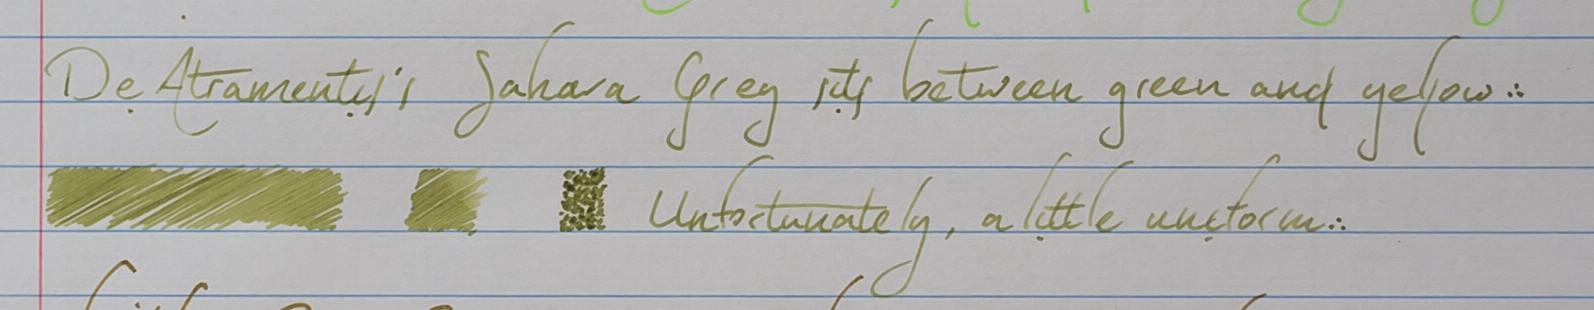 De Atramentis's Sahara Grey sits between green and yellow∴
Unfortunately, a little uniform∴